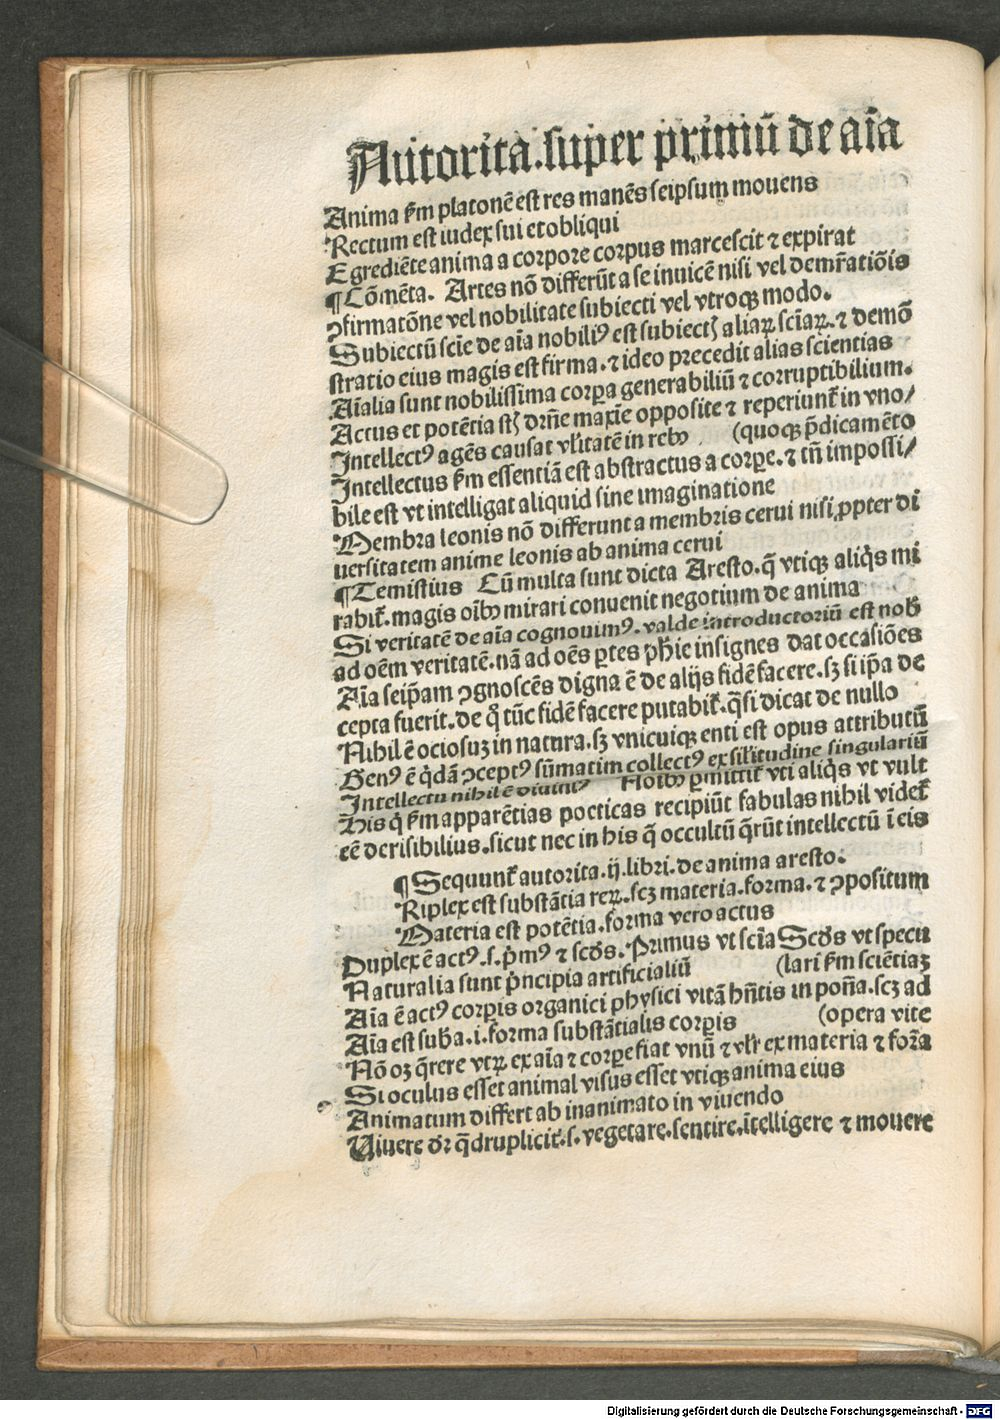 Autorita.super primū de aīa
Anima ẜm platonē est res manēs seipsum mouens
Rectum est iudex sui et obliqui
Egrediēte anima a corpore corpus marcescit ⁊ expirat
¶ Cōmēta. Artes nō differūt a se inuicē nisi vel demr̄atiōis
ꝯfirmatōne vel nobilitate subiecti vel vtroqꝫ modo.
Subiectū scīe de aīa nobiliꝰ est subiectꝫ aliaꝝ scīaꝝ.⁊ demō
stratio eius magis est firma.⁊ ideo precedit alias scientias
Aīalia sunt nobilissima corꝑa generabiliū ⁊ corruptibilium.
Actus et potētia sꝫt drn̄e maxīe opposite ⁊ reperiunt᷑ in vno/
Intellectꝰ agēs causat vlītatē in rebꝫ (quoqꝫ p̄dicamēto
Intellectus ẜm essentiā est abstractus a corꝑe.⁊ tn̄ impossi/
bile est vt intelligat aliquid sine imaginatione
Membra leonis nō differunt a membris cerui nisi ꝓpter di
uersitatem anime leonis ab anima cerui
¶ Temistius Cū multa sunt dicta Aresto.q̄ vtiqꝫ aliq̇s mi
rabit᷑.magis oībꝫ mirari conuenit negotium de anima
Si veritatē de aīa cognouimꝰ.valde introductoriū est nob̄
ad oēm veritatē.nā ad oēs ꝑtes ph̄ie insignes dat occasiōes
Aīa seip̄am ꝯgnoscēs digna ē de alijs fidē facere.sꝫ si ip̄a de
cepta fuerit.de q̊ tūc fidē facere putabit᷑.q̄si dicat de nullo
Nihil ē ociosuꝫ in natura.sꝫ vnicuiqꝫ enti est opus attributū
Genꝰ ē q̇dā ꝯceptꝰ sūmatim collectꝰ ex sil̄itudine singulariū
Intellectu nihil ē diuiniꝰ Hoībꝫ ꝑmittit᷑ vti aliq̇s vt vult
His q̇ ẜm apparētias poeticas recipiūt fabulas nihil videt᷑
eē derisibilius.sicut nec in his q̄ occultū q̄rūt intellectū ī eis
¶ Sequunt᷑ autorita.ij.libri.de anima aresto.
Riplex est substātia reꝝ.scꝫ materia.forma.⁊ ꝯpositum
Materia est potētia.forma vero actus
Duplex ē actꝰ.s.ṗmꝰ ⁊ scd̄s. Primus vt scīa Scd̄s vt specu
Naturalia sunt ṗncipia artificialiū (lari ẜm sciētiaꝫ
Aīa ē actꝰ corꝑis organici physici vitā hn̄tis in pon̄a.scꝫ ad
Aīa est sub̄a.i.forma substātialis corꝑis (opera vite
Nō oꝫ q̄rere vtꝝ ex aīa ⁊ corꝑe fiat vnū ⁊ vlr̄ ex materia ⁊ forma
Si oculus esset animal visus esset vtiqꝫ anima eius
Animatum differt ab inanimato in viuendo
Uiuere dr̄ q̄druplicit᷑.s.vegetare.sentire.ītelligere ⁊ mouere
Digitalisierung gefördert durch die Deutsche Forschungsgemeinschaft - DFG